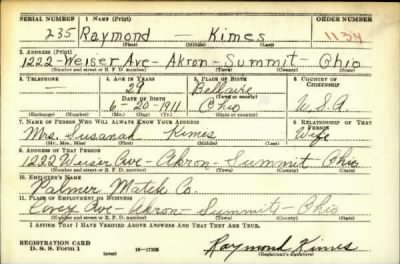 SERIAL NUMBER 1. NAME (Print) ORDER NUMBER
235 Raymond — Kimes 1134
(First) (Middle) (Last)
2. ADDRESS (Print)
1222-Weiser Ave-Akron-Summit-Ohio
(Number and street or R. F. D. number) (Town) (County) (State)
3. TELEPHONE 4. AGE IN YEARS 5. PLACE OF BIRTH 6. COUNTRY OF CITIZENSHIP
— 29 Bellaire
DATE OF BIRTH
6-20-1911 Ohio U.S.A
(Mo.) (Day) (Yr.) (State or country)
7. NAME OF PERSON WHO WILL ALWAYS KNOW YOUR ADDRESS 8. RELATIONSHIP OF THAT PERSON
Mrs. Susanah Kimes Wife
(Mr., Mrs., Miss) (First) (Middle) (Last)
9. ADDRESS OF THAT PERSON
1222 Weiser Ave-Akron-Summit Ohio
(Number and street or R. F. D. number) (Town) (County) (State)
10. EMPLOYER'S NAME
Palmer Match Co.
11. PLACE OF EMPLOYMENT OR BUSINESS
Ave-Akron-Summit-Ohio
(Number and street or R. F. D. number) (Town) (County) (State)
I AFFIRM THAT I HAVE VERIFIED ABOVE ANSWERS AND THAT THEY ARE TRUE.
REGISTRATION CARD
D. S. S. FORM 1 (over) Raymond Kimes
(Registrant's signature)